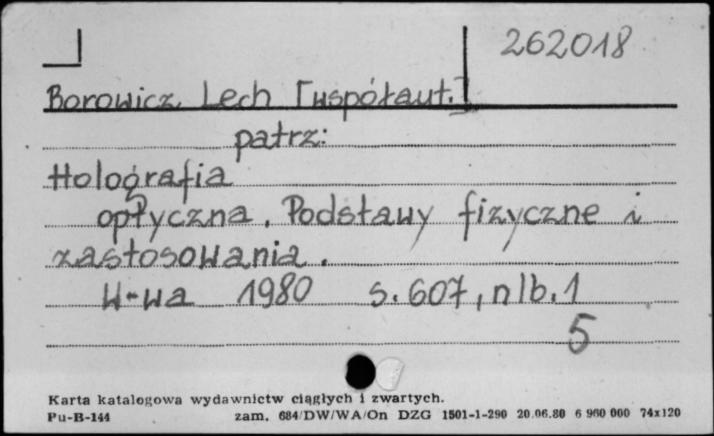 262018
Borowicz Lech [współaut.]
patrz:
Holografia
optyczna. Podstawy fizyczne i
zastosowania.
W-wa 1980 s. 607, nlb. 1
5
Karta katalogowa wydawnictw ciągłych i zwartych.
Pu-B-144 zam. 684/DW/WA/On DZG 1501-1-290 20.06.80 6 960 000 74x120